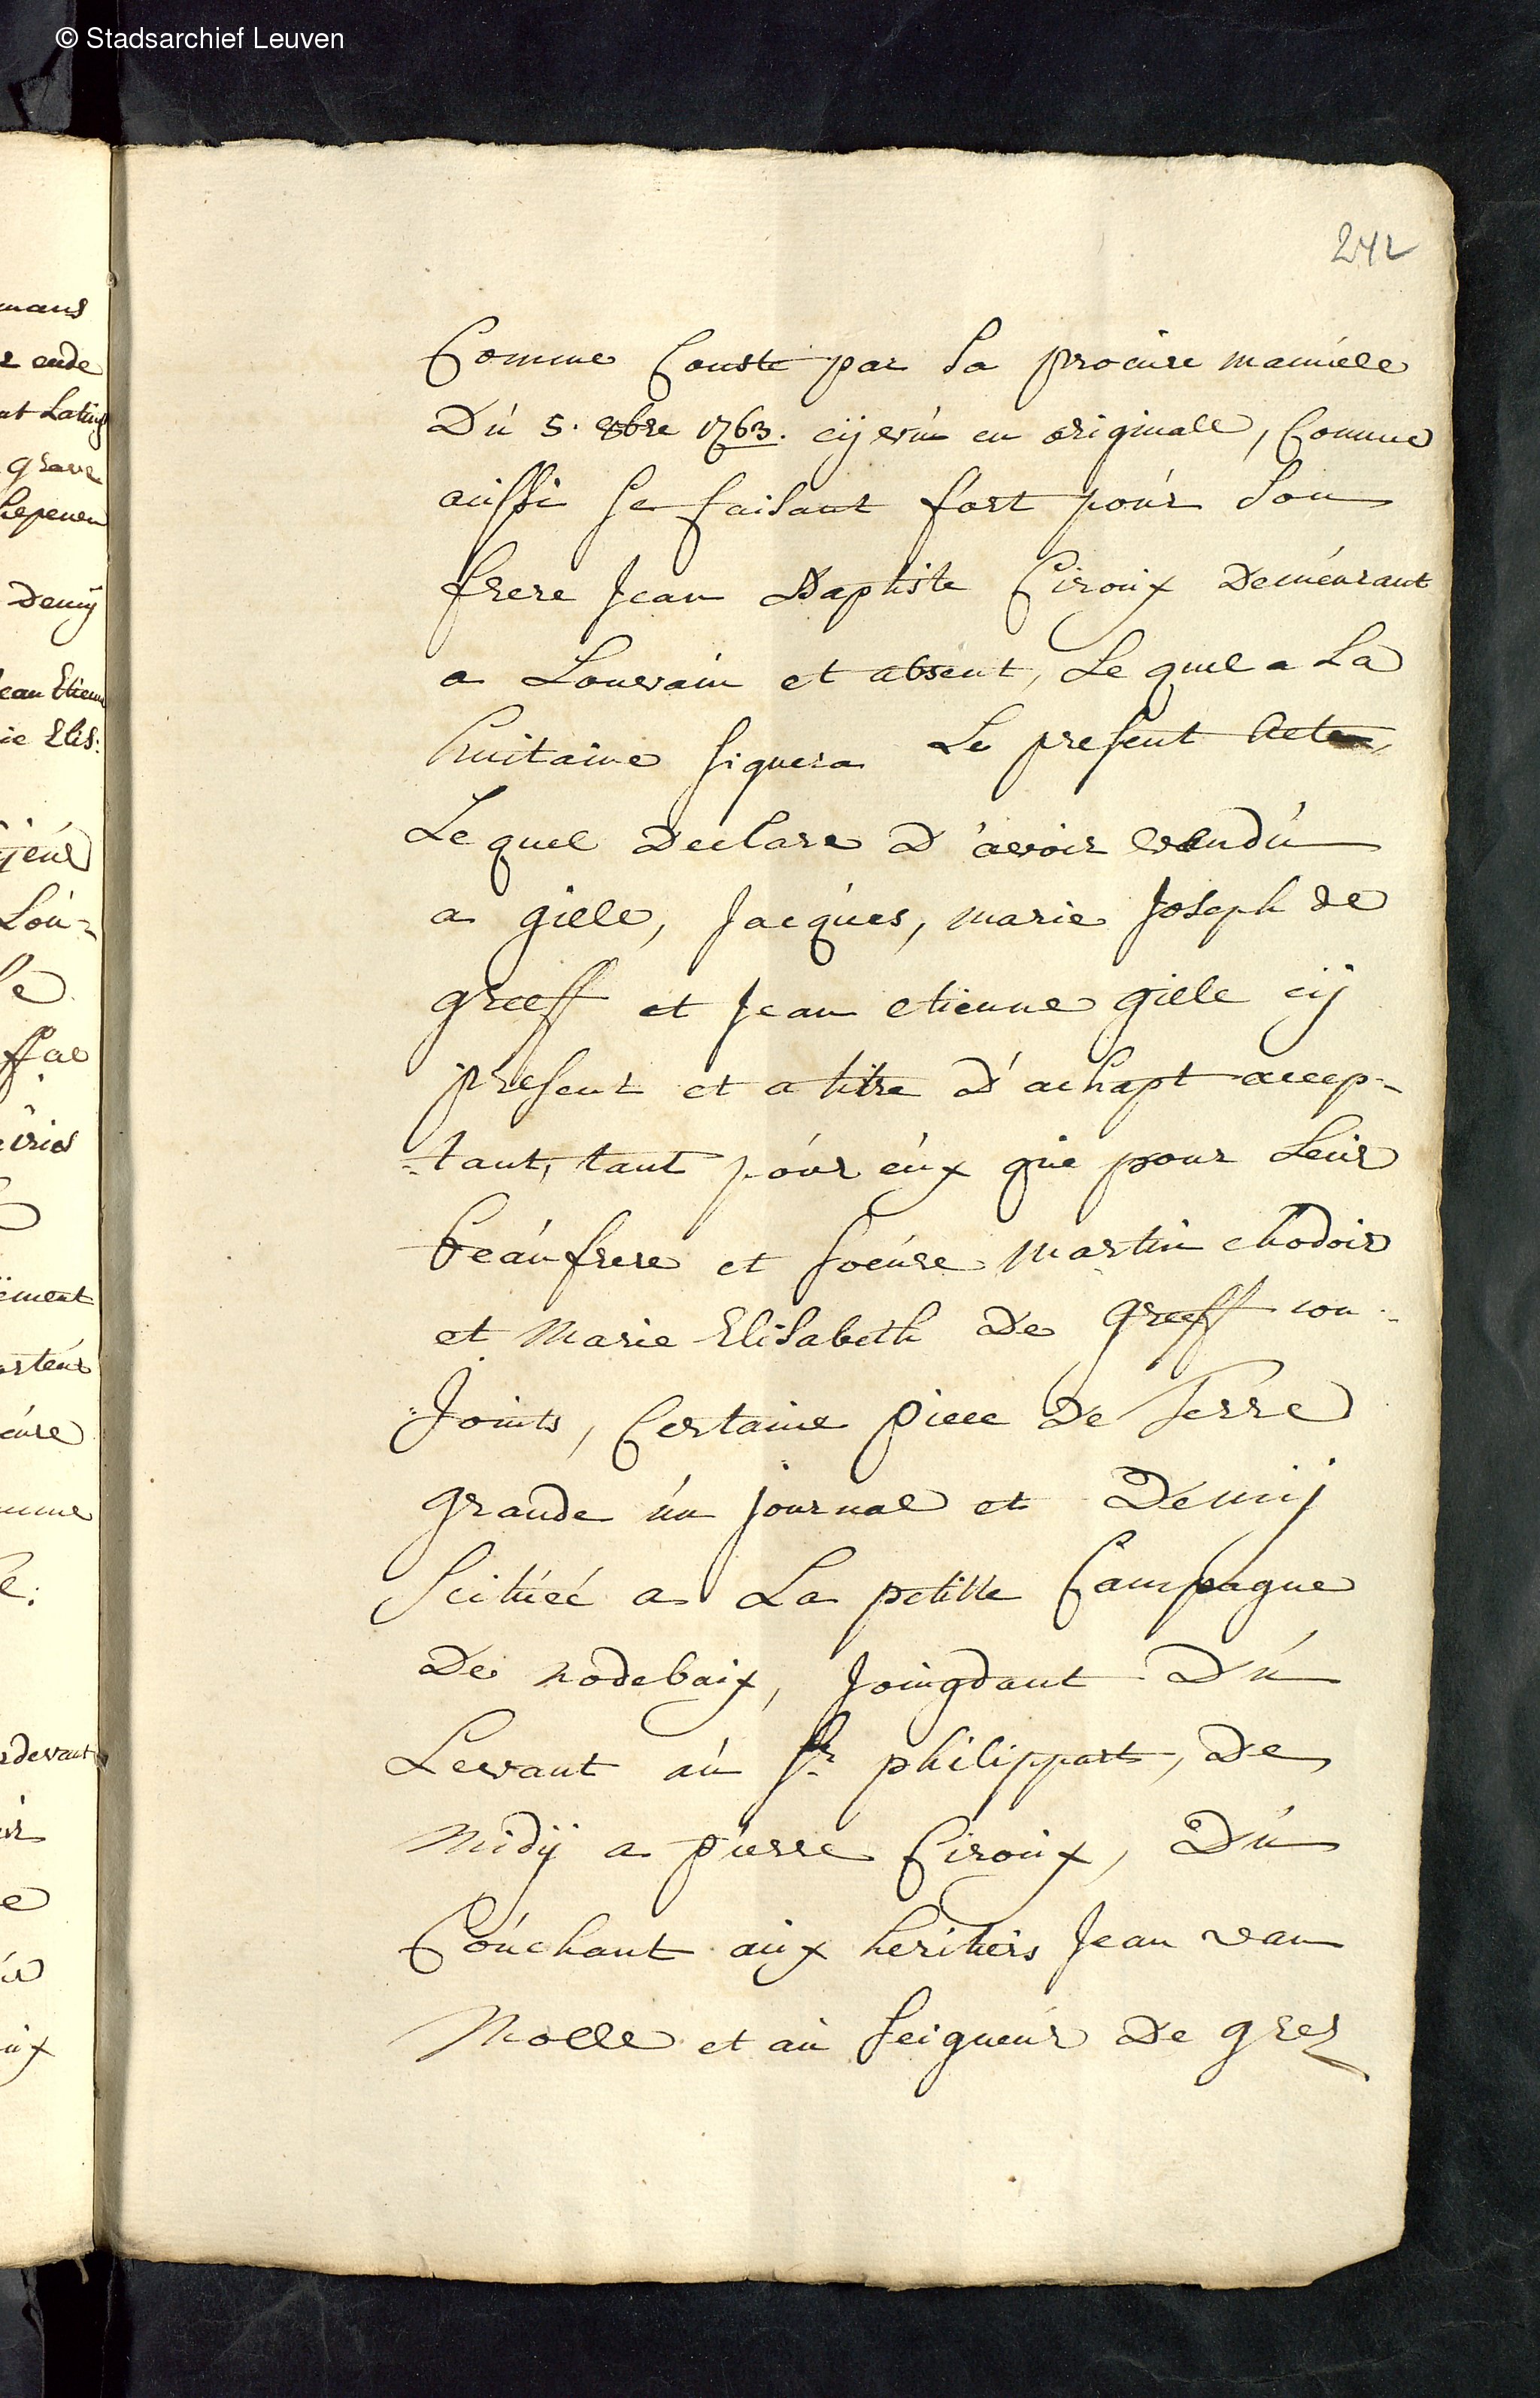 © Stadsarchief Leuven
242
Comme Conste par Sa procure manuele
Dú 5. 8bre 1763. cij vú en originall, Comme
aússi se faisant fort poúr Son
frere Jean Baptiste Ciroúx Demeúrant
a Louvain et absent, Le quel a La
huitaine signera Le present Acte,
Le quel Declare D'avoir vendú
a giele, Jacqúes, marie Joseph de
greeff et Jean etienne giele cij
present et a titre D'achapt accep-
-tant, tant poúr eúx qúe pour Leúr
beaúfrere et soeúre Martin chodoir
et Marie Elisabeth De greeff con-
-Joints, Certaine piece De Terre
grande ún journal et Demij
scitúéé a La petitte Campagne
De nodebaix, Joingdant Dú
Levant aú Sr philippart, De
midij a pierre Ciroúx, Dú
Coúchant aúx heritiers Jean van
Molle et aú seigneúr De grez
mans
ende
grave
Demij
Jean Etienne
Elis:
Loú-